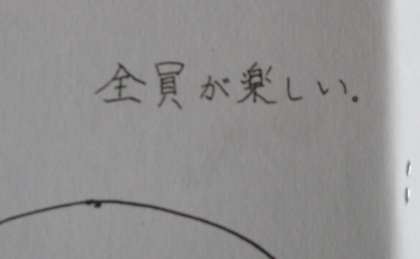 全員が楽しい。